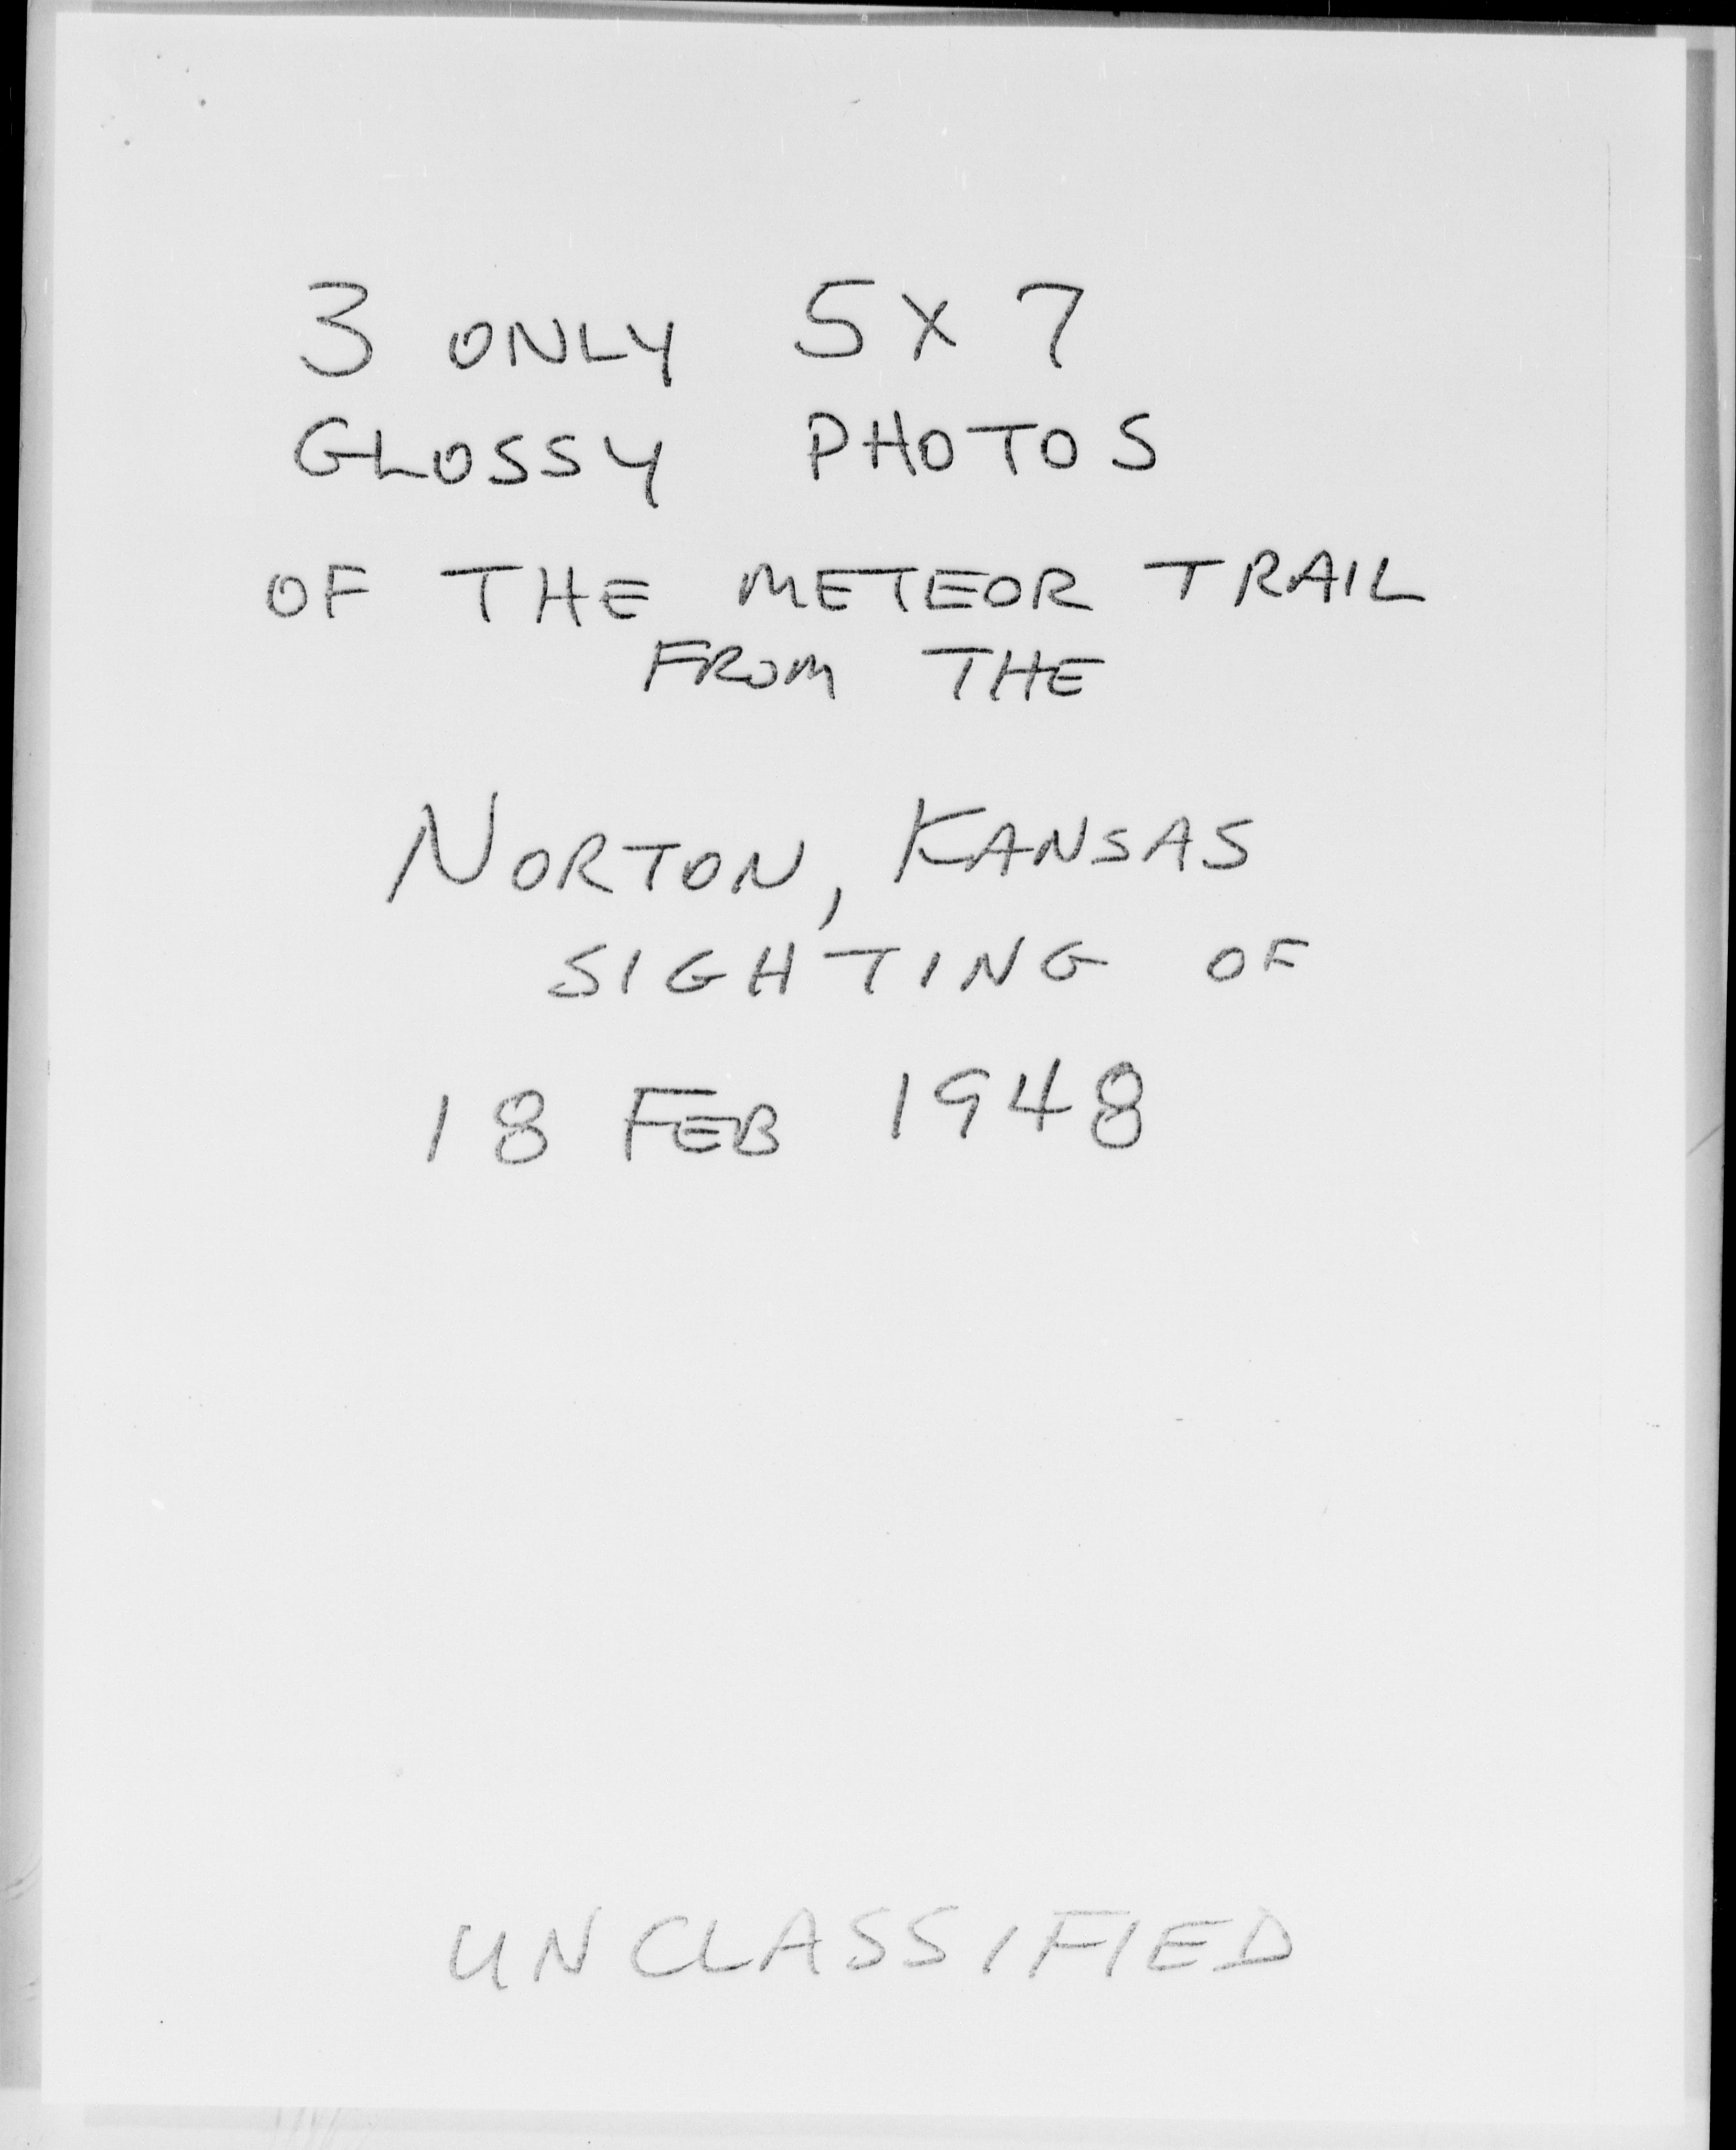 3 ONLY 5 X 7
GLOSSY PHOTOS
OF THE METEOR TRAIL
FROM THE
NORTON, KANSAS
SIGHTING OF
18 FEB 1948
UNCLASSIFIED